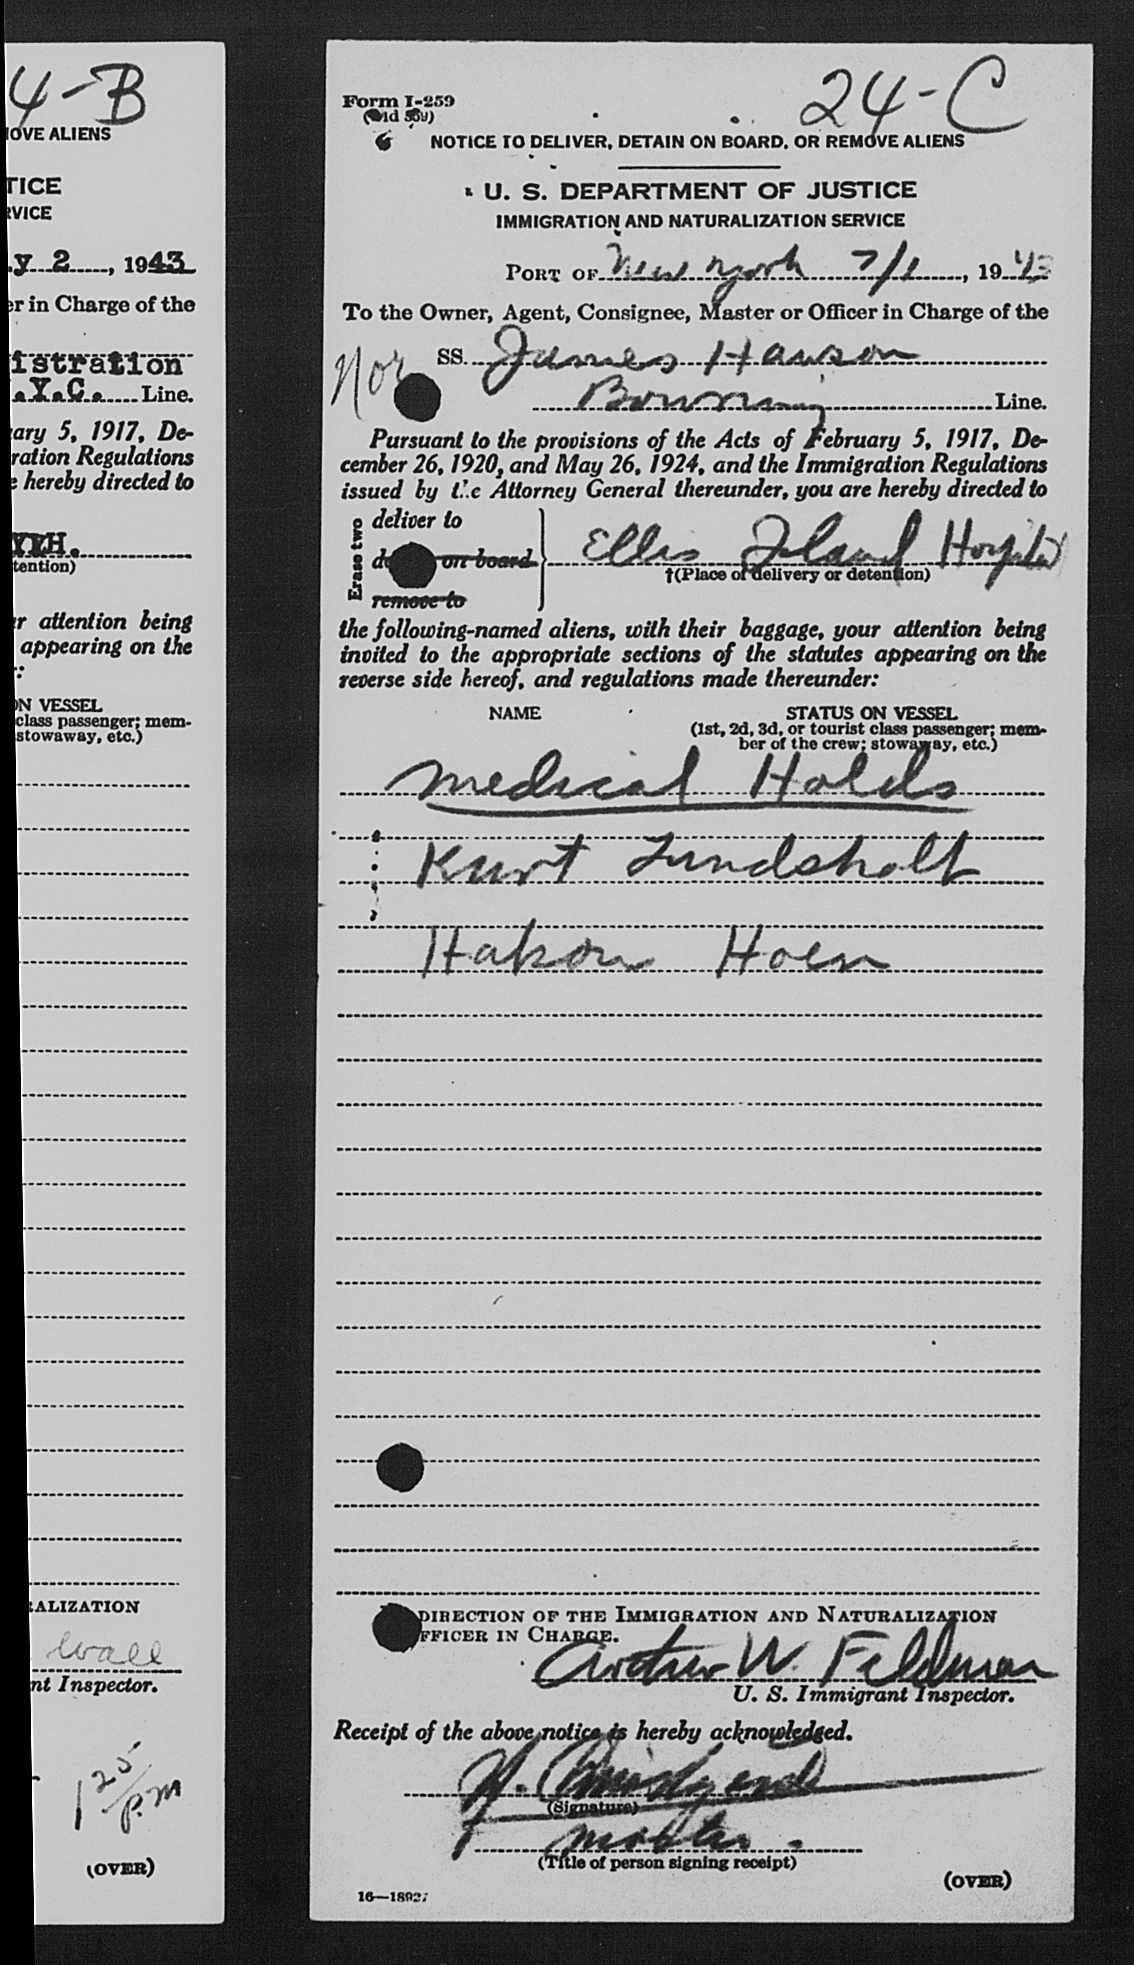 4-B
OVE ALIENS
TICE
RVICE
y 2, 1943
er in Charge of the
istration
.Y.C. Line.
ary 5, 1917, De-
ration Regulations
e hereby directed to
YTH.
tention)
r attention being
appearing on the
r:
ON VESSEL
class passenger; mem-
stowaway, etc.)
RALIZATION
Wall
nt Inspector.
1 25/P.M
(OVER)
24-C
Form I-259
(Old 559)
NOTICE TO DELIVER, DETAIN ON BOARD, OR REMOVE ALIENS
U. S. DEPARTMENT OF JUSTICE
IMMIGRATION AND NATURALIZATION SERVICE
PORT OF New York 7/1, 1943
To the Owner, Agent, Consignee, Master or Officer in Charge of the
Nor SS. James Hawson
Line.
Pursuant to the provisions of the Acts of February 5, 1917, De-
cember 26, 1920, and May 26, 1924, and the Immigration Regulations
issued by the Attorney General thereunder, you are hereby directed to
Erase two
deliver to
on board
remove to
Ellis Island Hospital
†(Place of delivery or detention)
the following-named aliens, with their baggage, your attention being
invited to the appropriate sections of the statutes appearing on the
reverse side hereof, and regulations made thereunder:
NAME STATUS ON VESSEL
(1st, 2d, 3d, or tourist class passenger; mem-
ber of the crew; stowaway, etc.)
Medical Holds
Kurt Lundsholt
Hakon Hoen
DIRECTION OF THE IMMIGRATION AND NATURALIZATION
FFICER IN CHARGE.
Andrew W. Feldman
U. S. Immigrant Inspector.
Receipt of the above notice is hereby acknowledged.
(Signature)
Master
(Title of person signing receipt)
(OVER)
16—18927